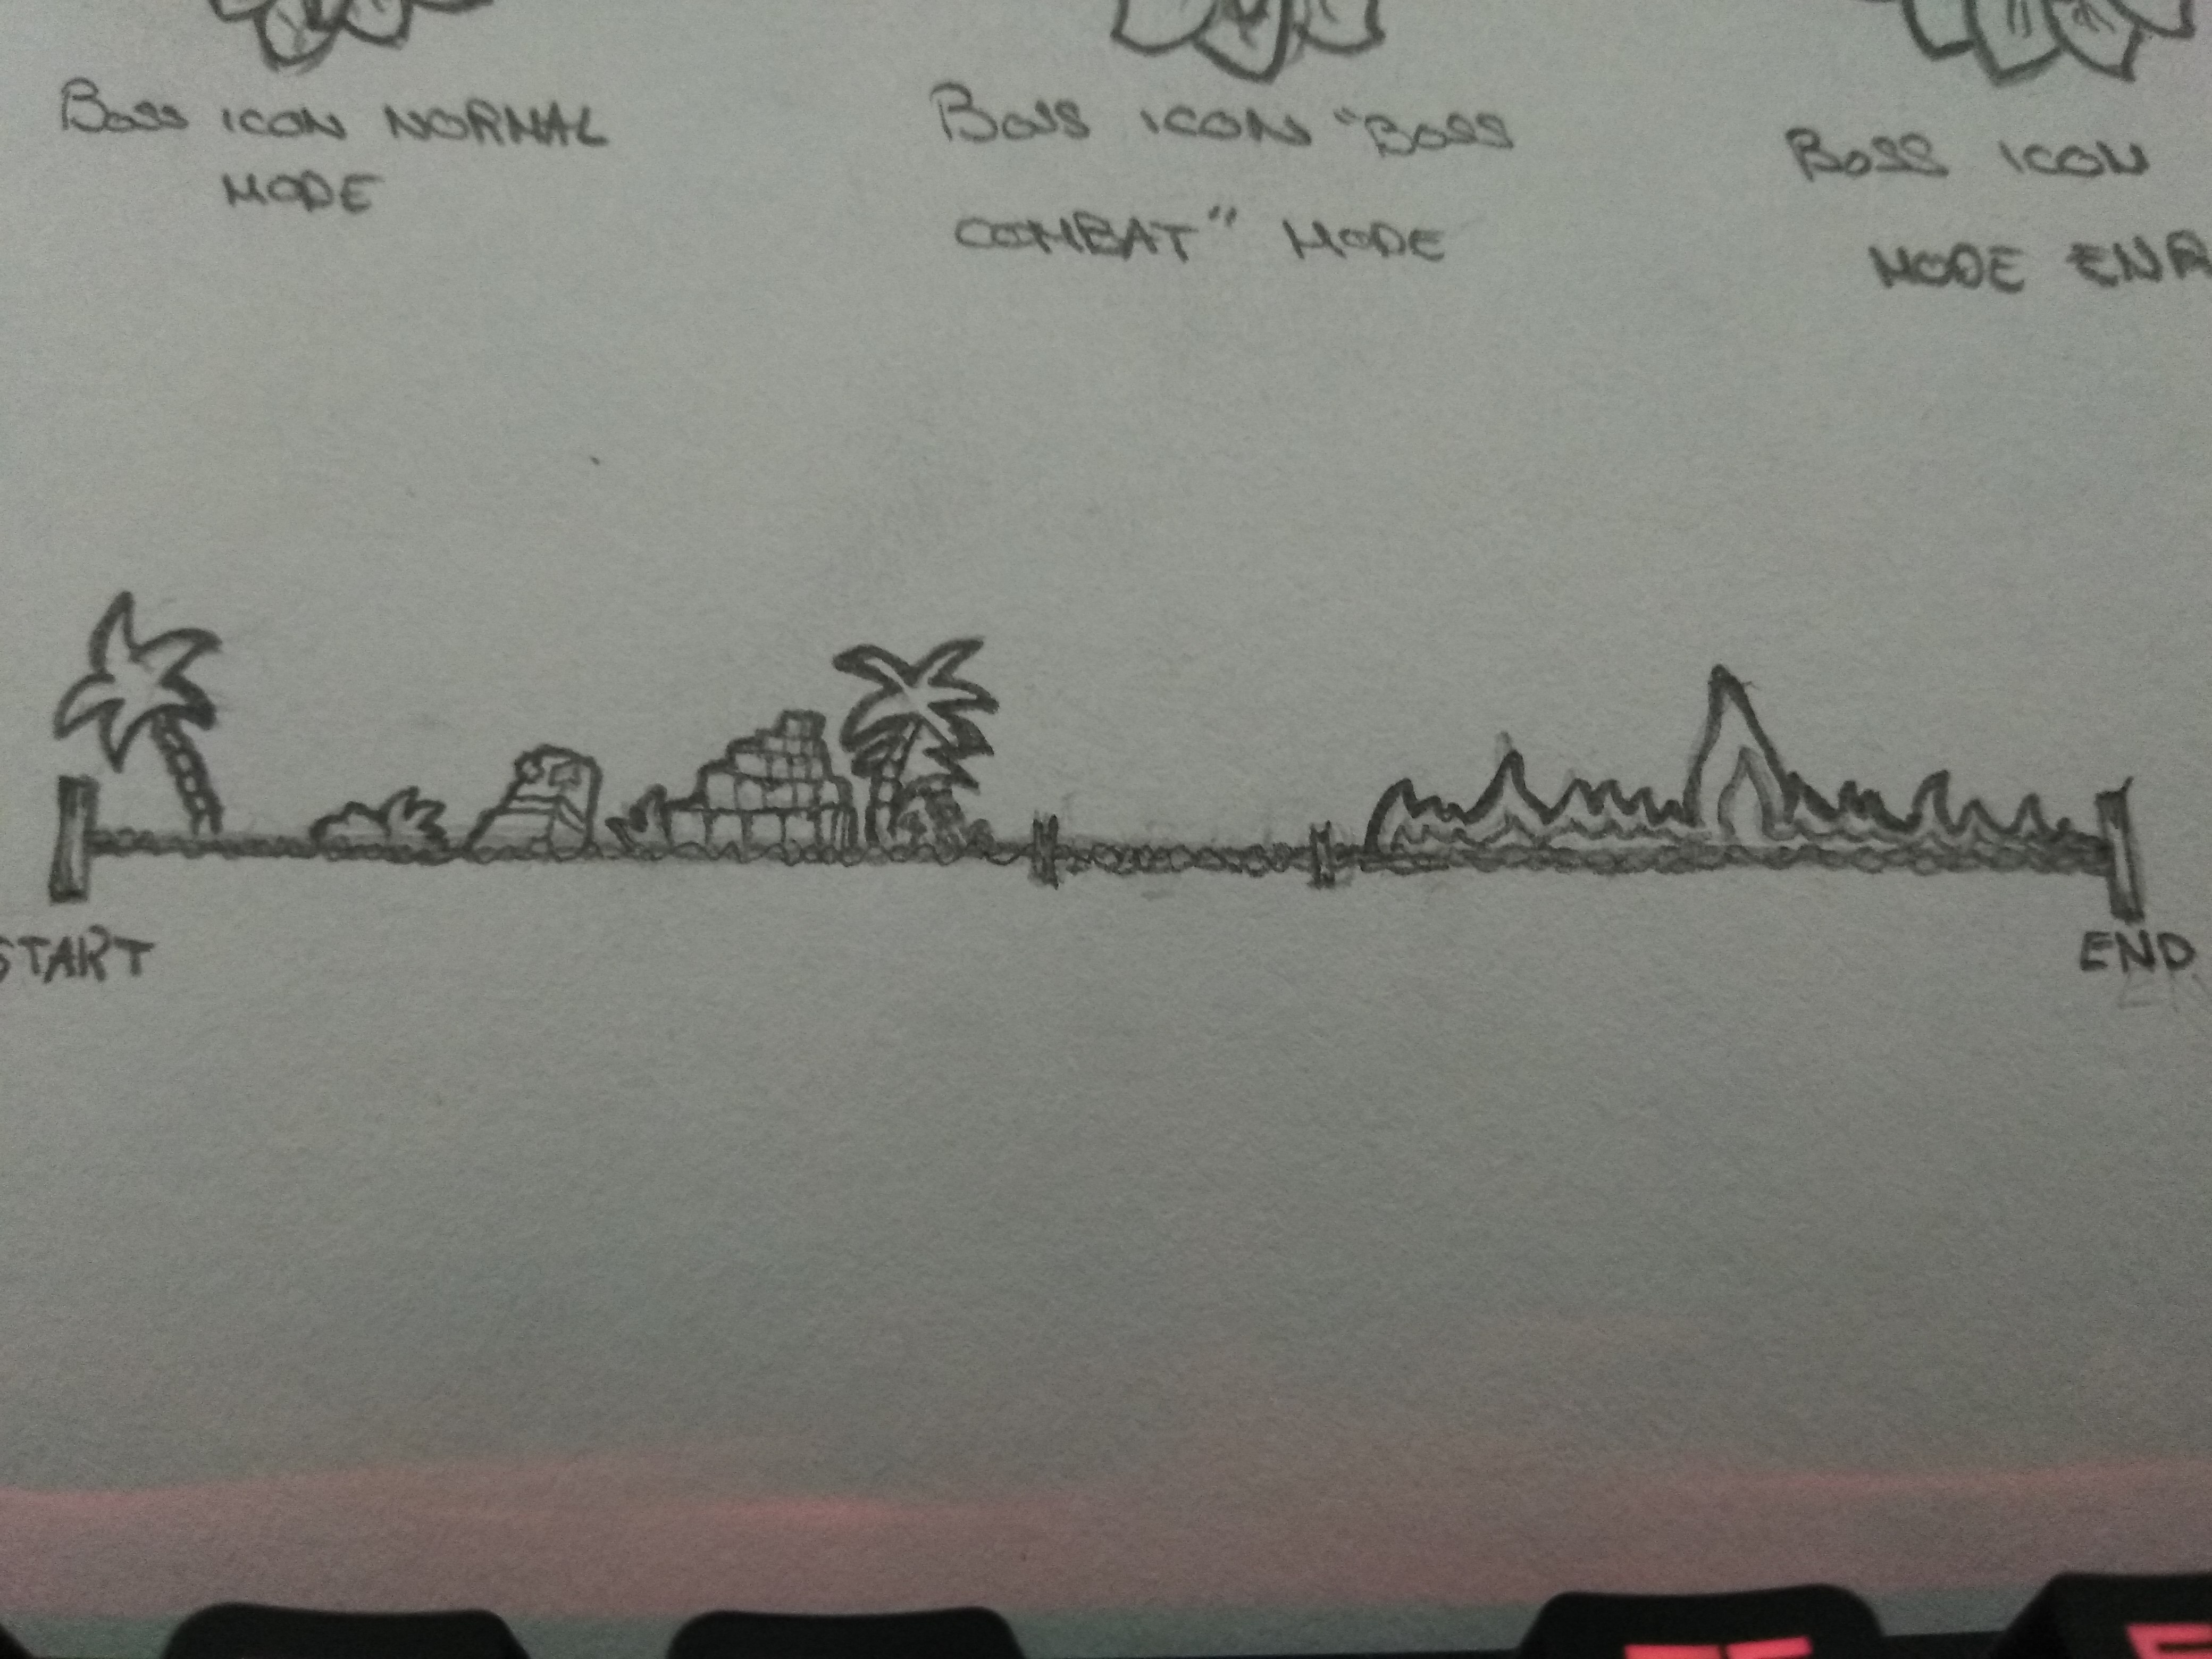 Boss ICON NORMAL
MODE
Boss ICON "Boss
COMBAT" MODE
Boss ICON
MODE
START
END